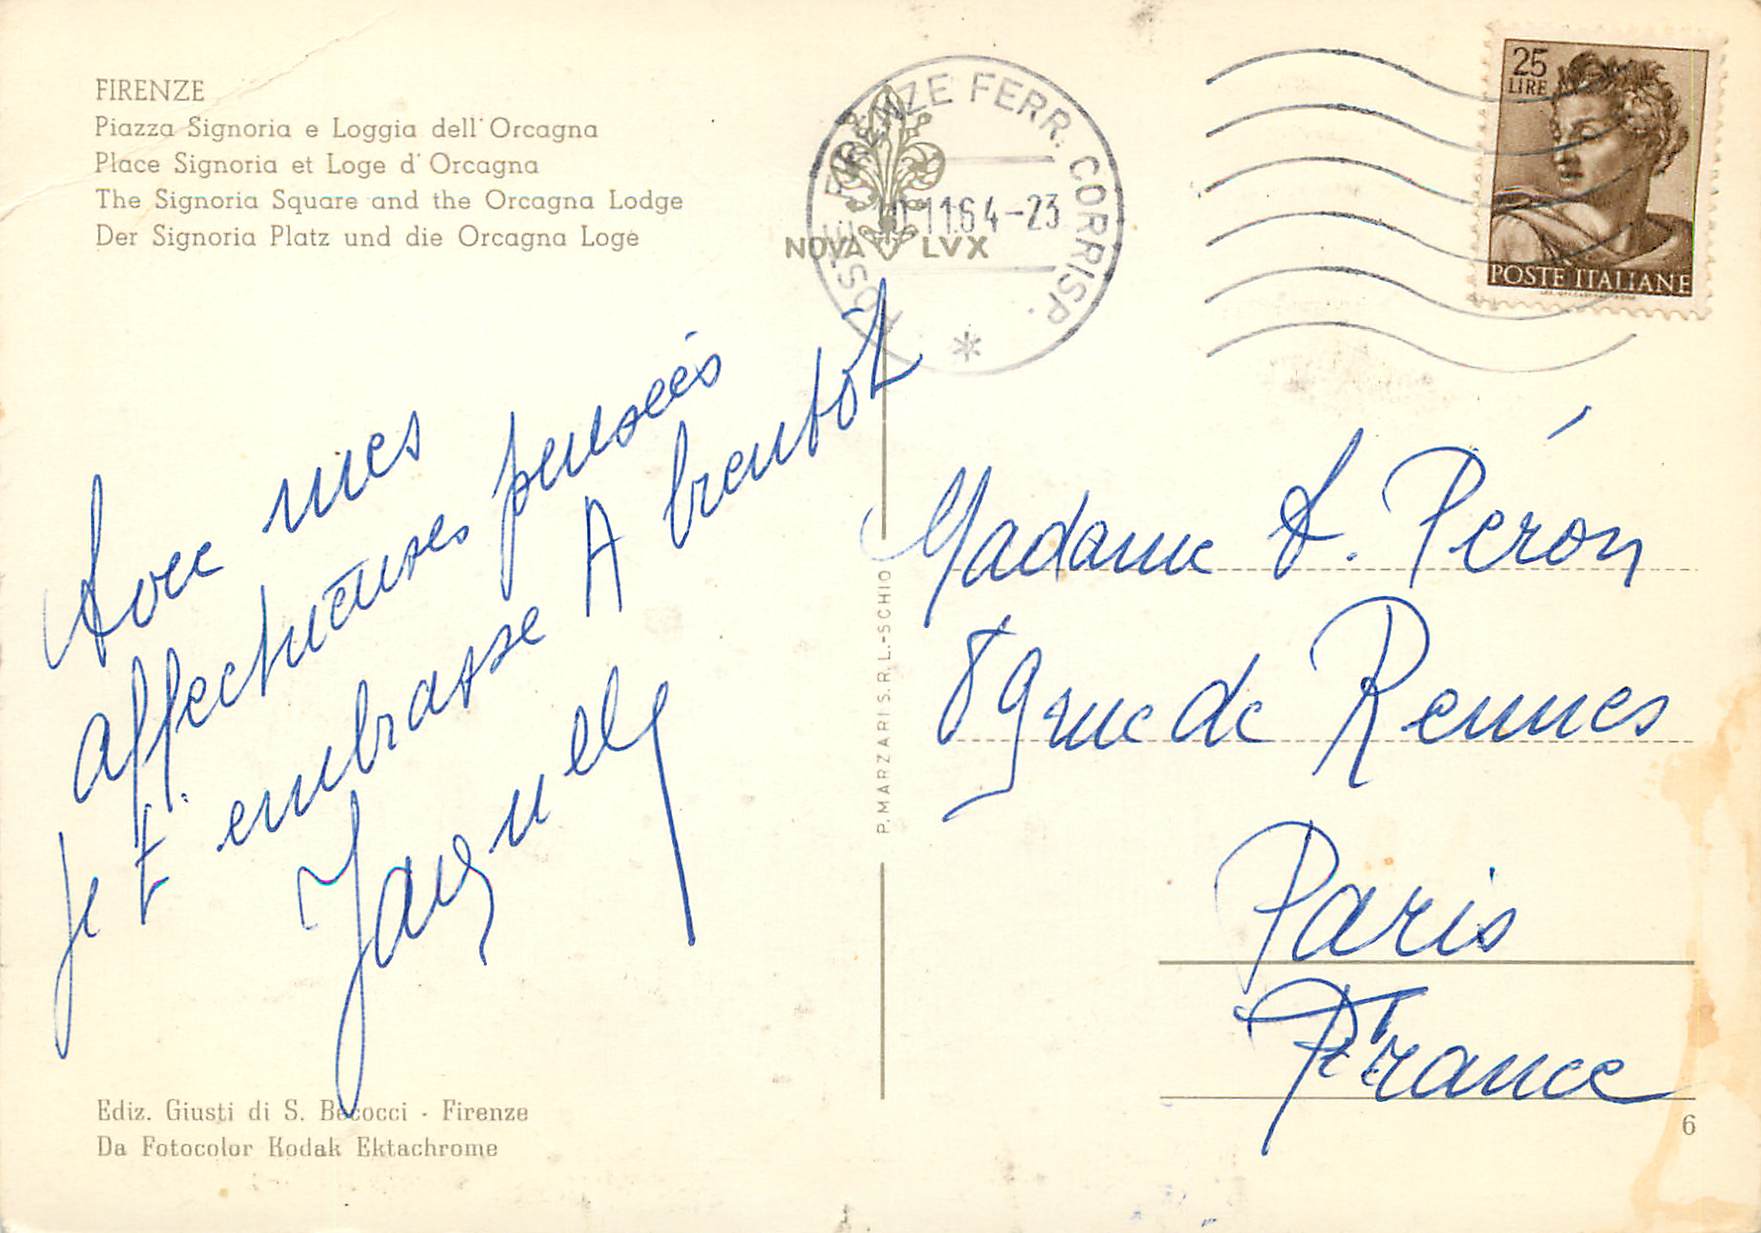 FIRENZE
Piazza Signoria e Loggia dell'Orcagna
Place Signoria et Loge d'Orcagna
The Signoria Square and the Orcagna Lodge
Der Signoria Platz und die Orcagna Loge
NOVA LVX
POSTE FIRENZE FERR. CORRISP.
11.64-23
25
LIRE
POSTE ITALIANE
Avec mes
affectueuses pensées
je t'embrasse A bientôt
Jacquelle
P. MARZARI S.R.L.-SCHIO
Madame A. Péron
89 rue de Rennes
Paris
France
Ediz. Giusti di S. Becocci - Firenze
Da Fotocolor Kodak Ektachrome
6